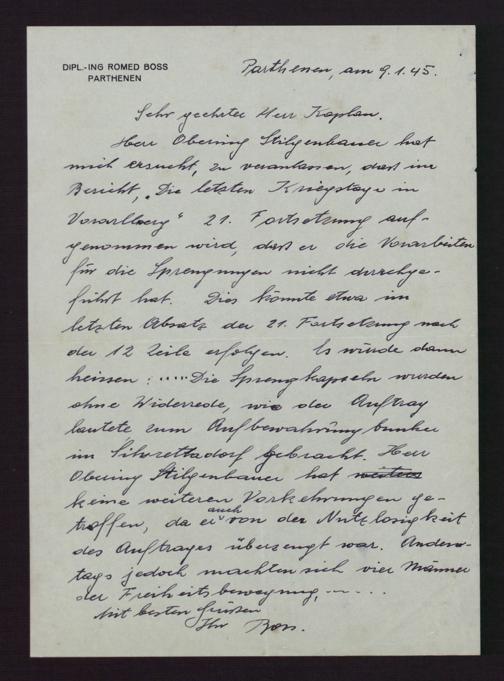 DIPL.-ING ROMED BOSS
PARTHENEN
Parthenen, am 9.1.45.
Sehr geehrter Herr Kaplan.
Herr Obering Stilgenbauer hat
mich ersucht, zu veranlassen, dass im
Bericht, „Die letzten Kriegstage in
Vorarlberg" 21. Fortsetzung auf-
genommen wird, dass er die Vorarbeiten
für die Sprengungen nicht durchge-
führt hat. Dies könnte etwa im
letzten Absatz der 21. Fortsetzung nach
der 12 Zeile erfolgen. Es würde dann
heissen : ..... Die Sprengkapseln wurden
ohne Widerrede, wie der Auftrag
lautete zum Aufbewahrungbunker
im Silvrettadorf gebracht. Herr
Obering Stilgenbauer hat weiters
keine weiteren Vorkehrungen ge-
troffen, da er auch von der Nutzlosigkeit
des Auftrages überzeugt war. Andern-
tags jedoch machten sich vier Männer
der Freiheitsbewegung, - - . . .
Mit besten Grüssen
Ihr Boss.